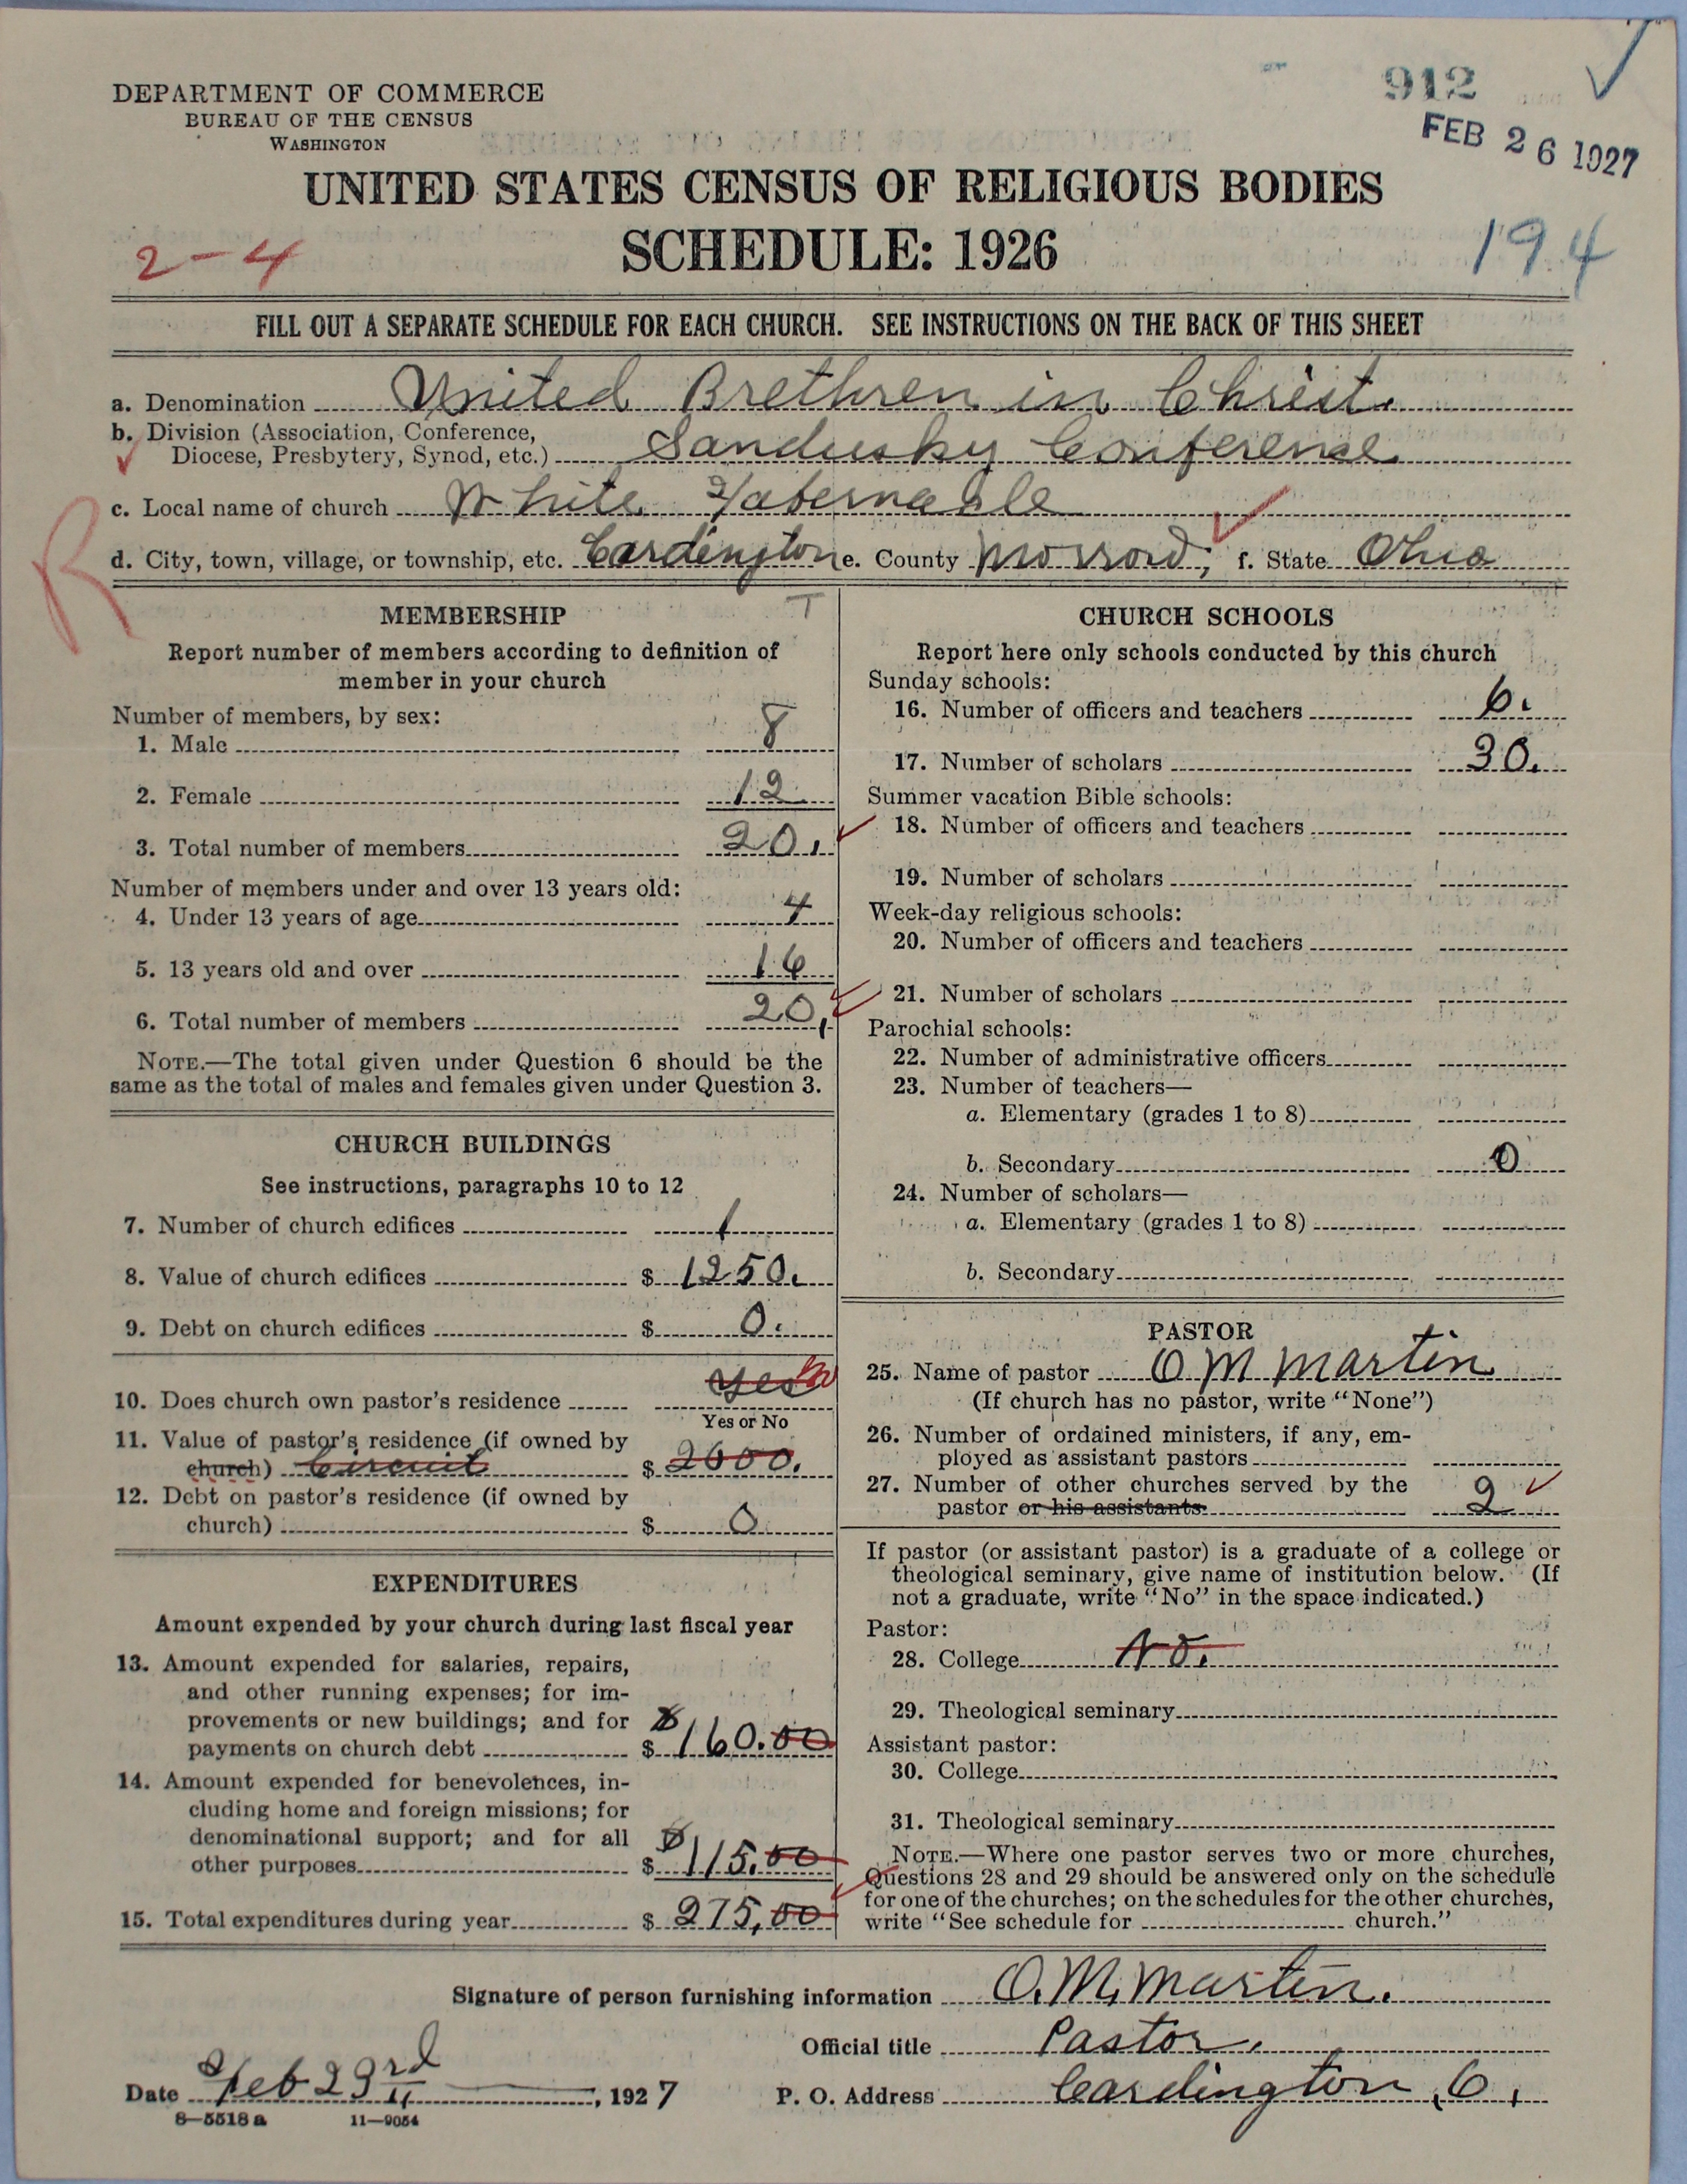 912
FEB 26 1927
DEPARTMENT OF COMMERCE
BUREAU OF THE CENSUS
WASHINGTON
UNITED STATES CENSUS OF RELIGIOUS BODIES
2-4
SCHEDULE: 1926
194
FILL OUT A SEPARATE SCHEDULE FOR EACH CHURCH. SEE INSTRUCTIONS ON THE BACK OF THIS SHEET
a. Denomination United Brethren in Christ.
b. Division (Association, Conference,
Diocese, Presbytery, Synod, etc.) Sandusky Conference
c. Local name of church White Tabernacle
R
d. City, town, village, or township, etc. Cardington e. County Morrow; f. State Ohio
MEMBERSHIP T
Report number of members according to definition of
member in your church
Number of members, by sex:
1. Male 8
2. Female 12
3. Total number of members 20.
Number of members under and over 13 years old:
4. Under 13 years of age 4
5. 13 years old and over 16
6. Total number of members 20.
NOTE.—The total given under Question 6 should be the
same as the total of males and females given under Question 3.
CHURCH BUILDINGS
See instructions, paragraphs 10 to 12
7. Number of church edifices 1
8. Value of church edifices $ 1250.
9. Debt on church edifices $ 0.
10. Does church own pastor's residence Yes No
Yes or No
11. Value of pastor's residence (if owned by
church) Circuit $ 2600.
12. Debt on pastor's residence (if owned by
church) $ 0
EXPENDITURES
Amount expended by your church during last fiscal year
13. Amount expended for salaries, repairs,
and other running expenses; for im-
provements or new buildings; and for
payments on church debt $ 160.00
14. Amount expended for benevolences, in-
cluding home and foreign missions; for
denominational support; and for all
other purposes $ 115.00
15. Total expenditures during year $ 275,00
CHURCH SCHOOLS
Report here only schools conducted by this church
Sunday schools:
16. Number of officers and teachers 6.
17. Number of scholars 30.
Summer vacation Bible schools:
18. Number of officers and teachers
19. Number of scholars
Week-day religious schools:
20. Number of officers and teachers
21. Number of scholars
Parochial schools:
22. Number of administrative officers
23. Number of teachers—
a. Elementary (grades 1 to 8)
b. Secondary 0
24. Number of scholars—
a. Elementary (grades 1 to 8)
b. Secondary
PASTOR
25. Name of pastor O M Martin
(If church has no pastor, write "None")
26. Number of ordained ministers, if any, em-
ployed as assistant pastors
27. Number of other churches served by the
pastor or his assistants 2
If pastor (or assistant pastor) is a graduate of a college or
theological seminary, give name of institution below. (If
not a graduate, write "No" in the space indicated.)
Pastor:
28. College No.
29. Theological seminary
Assistant pastor:
30. College
31. Theological seminary
NOTE.—Where one pastor serves two or more churches,
Questions 28 and 29 should be answered only on the schedule
for one of the churches; on the schedules for the other churches,
write "See schedule for church."
Signature of person furnishing information O. M. Martin.
Official title Pastor.
Date Feb 23rd, 1927 P. O. Address Cardington, O.
8—5518 a 11—9054